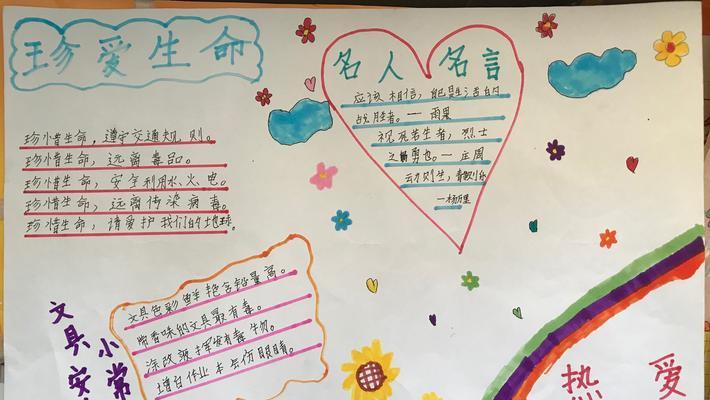 珍爱生命
珍惜生命，遵守交通规则。
珍惜生命，远离毒品。
珍惜生命，安全利用水、火、电。
珍惜生命，远离传染病毒。
珍惜生命，请爱护我们的地球。
名人名言
应该相信，自己是生活的
战胜者。—雨果
视死若生者，烈士
之勇也。—庄周
动则生，静则乐
—杨万里
文具安
小常
文具色彩鲜艳含铅量高。
带香味的文具最有毒。
涂改液挥发有毒物。
增白作业本会伤眼睛。
爱
热